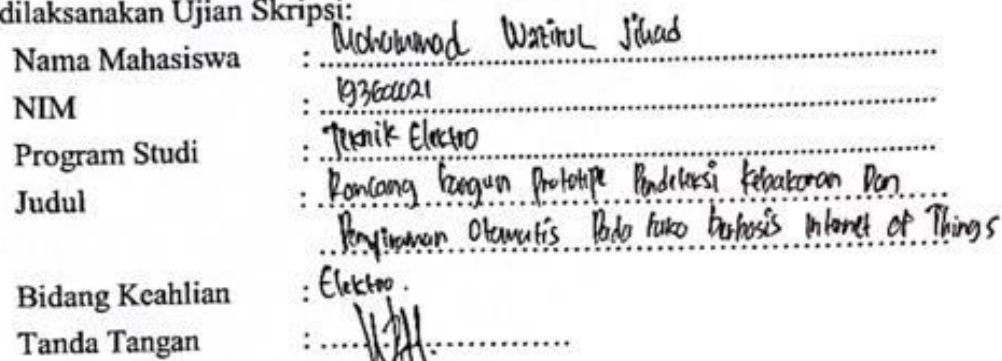 dilaksanakan Ujian Skripsi:
Nama Mahasiswa : Mohammad Wazirul Jihad
NIM :
Program Studi : Teknik Elektro
Judul : Rancang Bangun Prototipe Pendeteksi Kebakaran Dan
Penyiraman Otomatis Pada Ruko berbasis Internet of Things
Bidang Keahlian : Elektro.
Tanda Tangan :